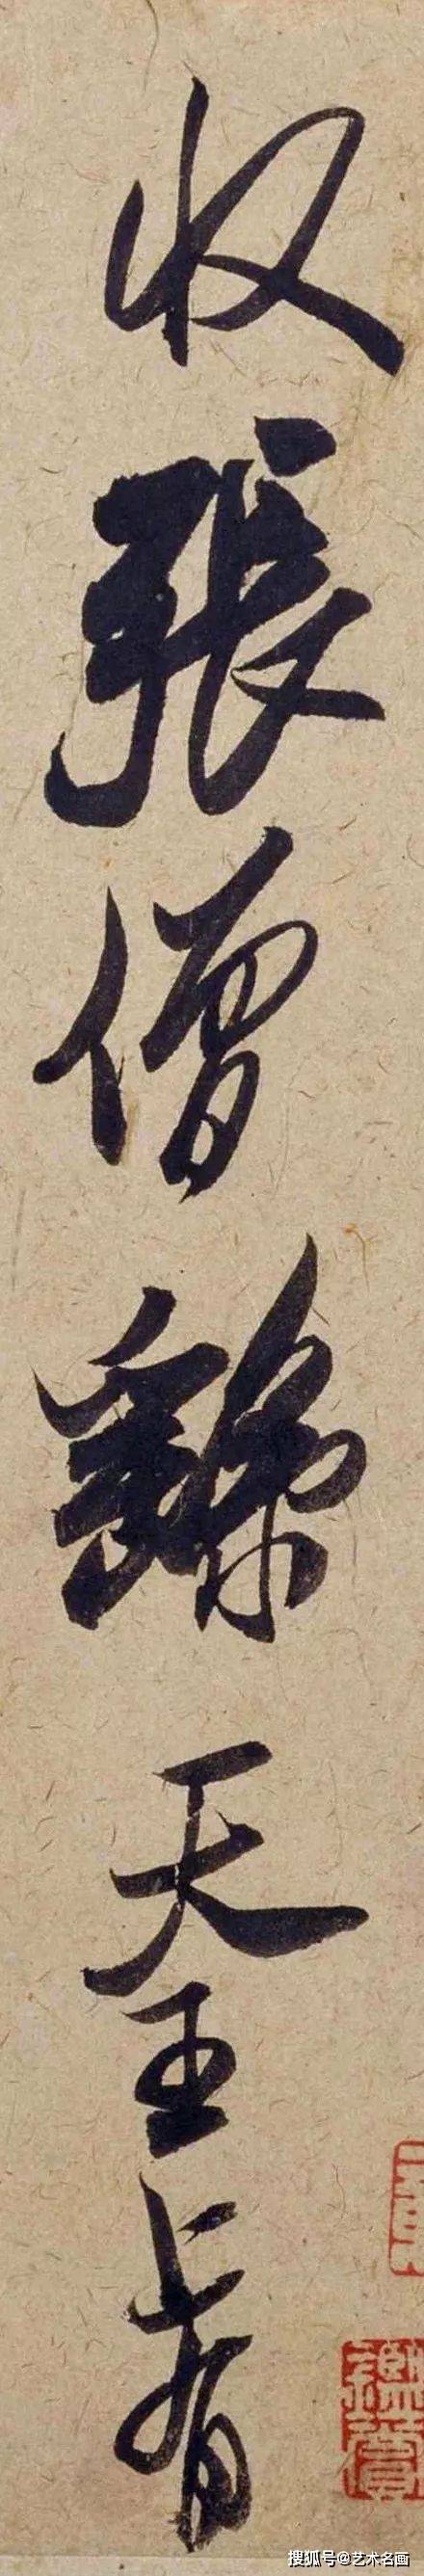 收張僧繇天王上有
搜狐号@艺术名画